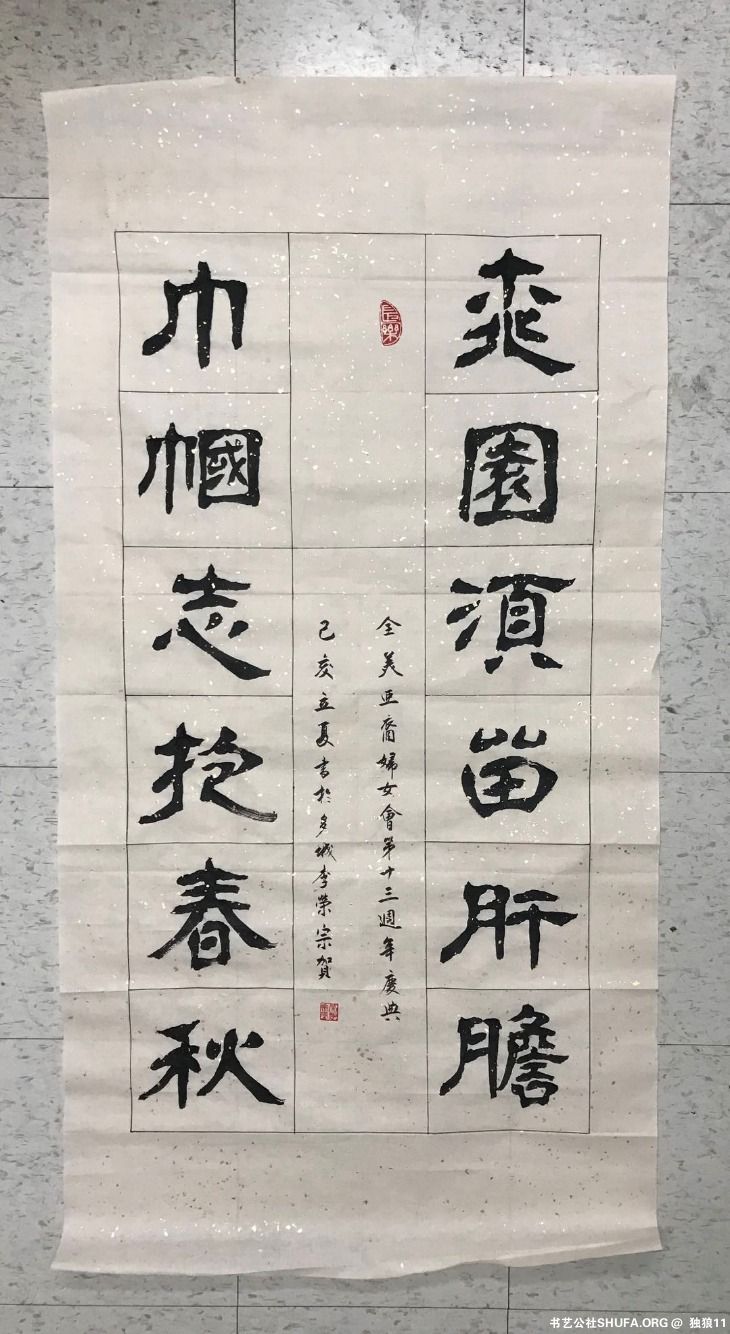 桃園須留肝膽
長樂
全美亞裔婦女會第十三週年慶典
己亥立夏書於多城李榮宗賀
巾幗志抱春秋
书艺公社SHUFA.ORG @ 独狼11